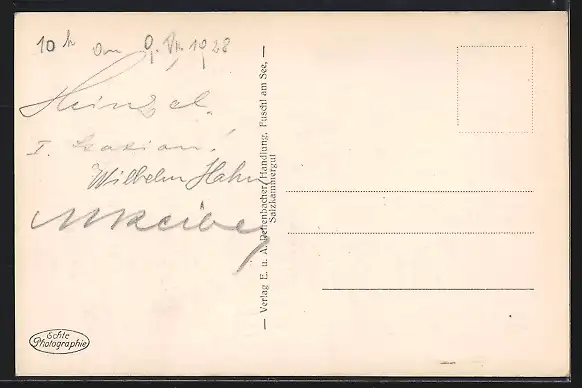 10 h am 9. VII. 1928
Heinzel.
I. Station!
Wilhelm Hahn
— Verlag E. u. A. Deffenbacher, Handlung, Fuschl am See, —
Salzkammergut
Echte
Photographie